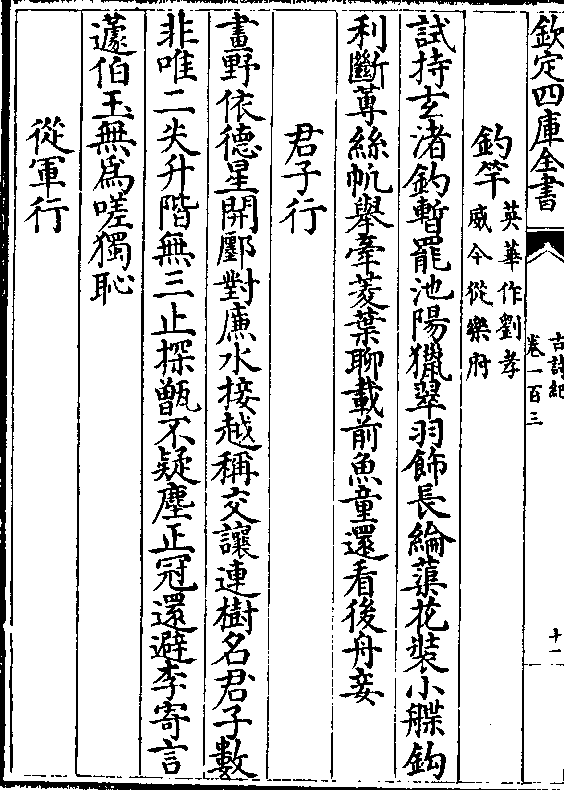 欽定四庫全書
古詩紀
卷一百三
十一
釣竿英華作劉孝
威今從樂府
試持玄渚釣暫罷池陽獵翠羽飾長綸蕖花裝小艓鈎
利斷蓴絲帆舉牽菱葉聊載前魚童還看後舟妾
君子行
畫野依德星開鄽對㢘水接越稱交讓連樹名君子數
非唯二失升階無三止探甑不疑塵正冠還避李寄言
蘧伯玉無為嗟獨恥
從軍行